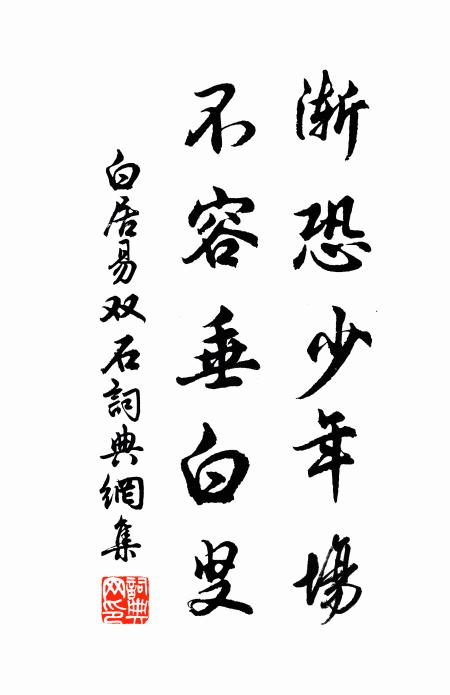 漸恐少年場
不容垂白叟
白居易双石詞典網集
詞典网印